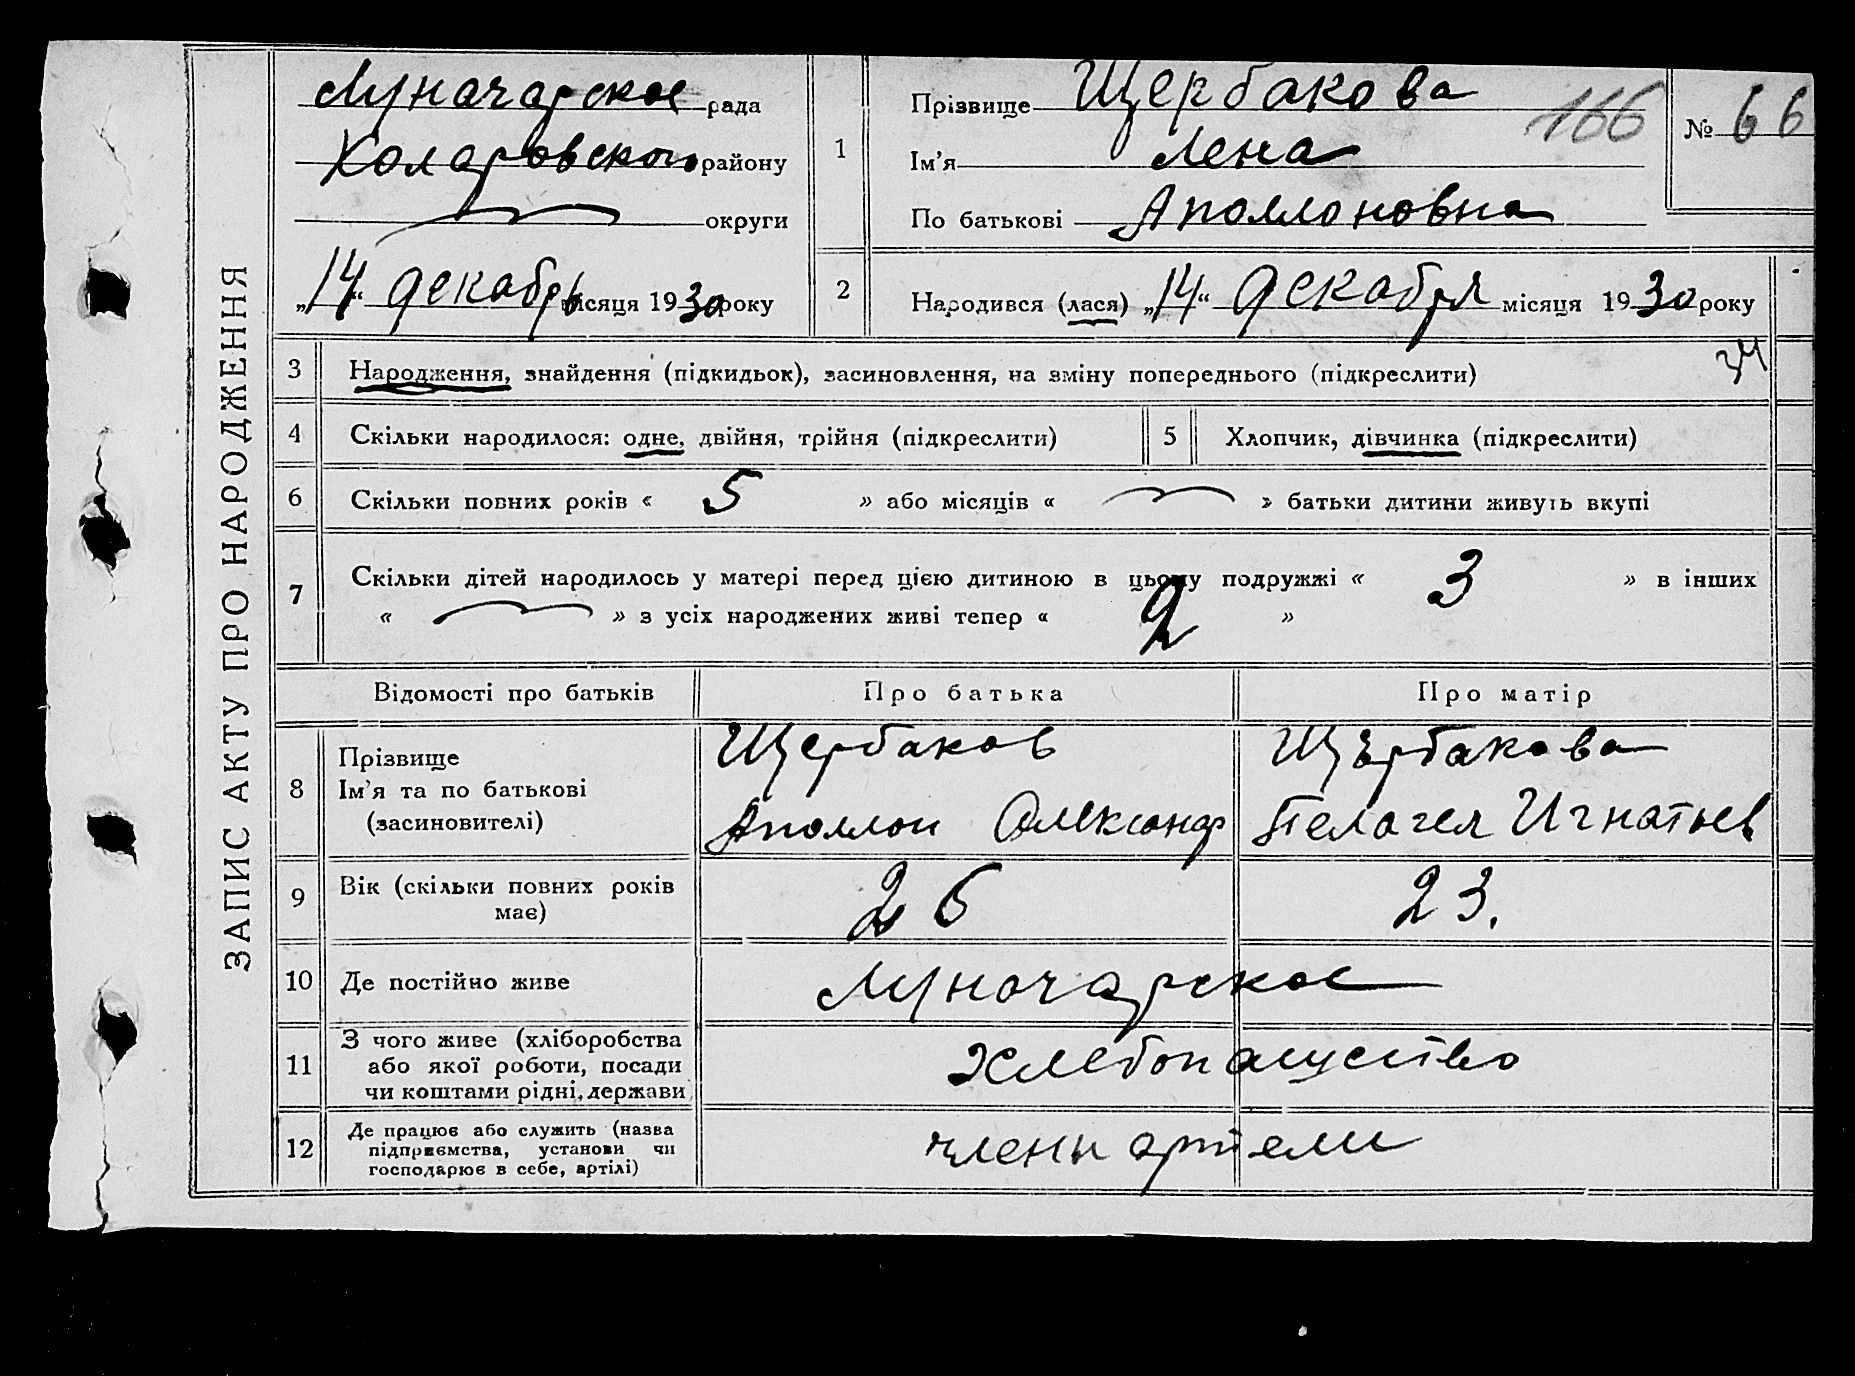 ЗАПИС АКТУ ПРО НАРОДЖЕННЯ
Луначарское рада
Коларовского району
округи
„14“ декабрь місяця 1930 року
1
Прізвище Щербакова
Ім’я Лена
По батькові Аполлоновна
166
№ 66
2
Народився (лася) „14“ декабря місяця 1930 року
3 Народження, знайдення (підкидьок), засиновлення, на зміну попереднього (підкреслити)
34
4 Скільки народилося: одне, двійня, трійня (підкреслити) 5 Хлопчик, дівчинка (підкреслити)
6 Скільки повних років « 5 » або місяців « » батьки дитини живуть вкупі
7 Скільки дітей народилось у матері перед цією дитиною в цьому подружжі « 3 » в інших
« » з усіх народжених живі тепер « 2 »
Відомості про батьків Про батька Про матір
8 Прізвище
Ім’я та по батькові
(засиновителі)
Щербаков
Аполлон Александр
Щербакова
Пелагея Игнатьев
9 Вік (скільки повних років
має)
26 23.
10 Де постійно живе Луначарское
11 З чого живе (хліборобства
або якої роботи, посади
чи коштами рідні, держави
Хлебопашество
12 Де працює або служить (назва
підприємства, установи чи
господарює в себе, артілі)
члены артели